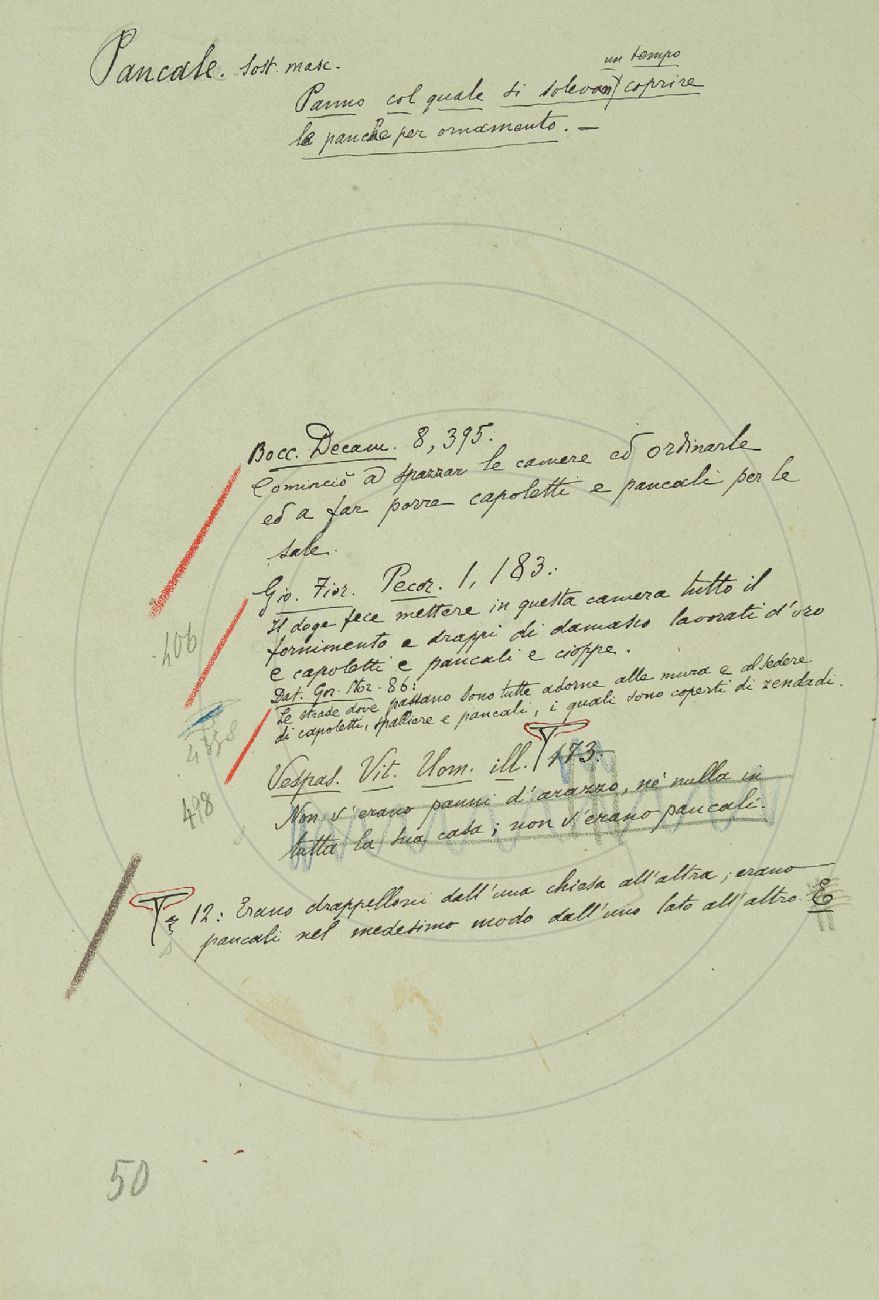 Pancale. Sost. masc.
un tempo
Panno col quale si solevan coprire
le panche per ornamento. —
Bocc. Decam. 8, 395:
Cominciò a spazzar le camere ed ordinarle
ed a far porre capoletti e pancali per le
sale.
Gio. Fior. Pecor. 1, 183:
Il doge fece mettere in questa camera tutto il
fornimento e drappi di damasco lavorati d'oro
e capoletti e pancali e cioppe.
Dat. Gor. Noz. 86:
Le strade dove passano sono tutte adorne alle mura e al sedere
di capoletti, spalliere e pancali, i quali sono coperti di zendadi.
Vespas. Vit. Uom. ill. 473:
Non v'erano panni d'arazzo, nè nulla in
tutta la sua casa; non v'erano pancali.
E 12: Erano drappelloni dall'una chiesa all'altra; erano
pancali nel medesimo modo dall'uno lato all'altro.
406
498
50